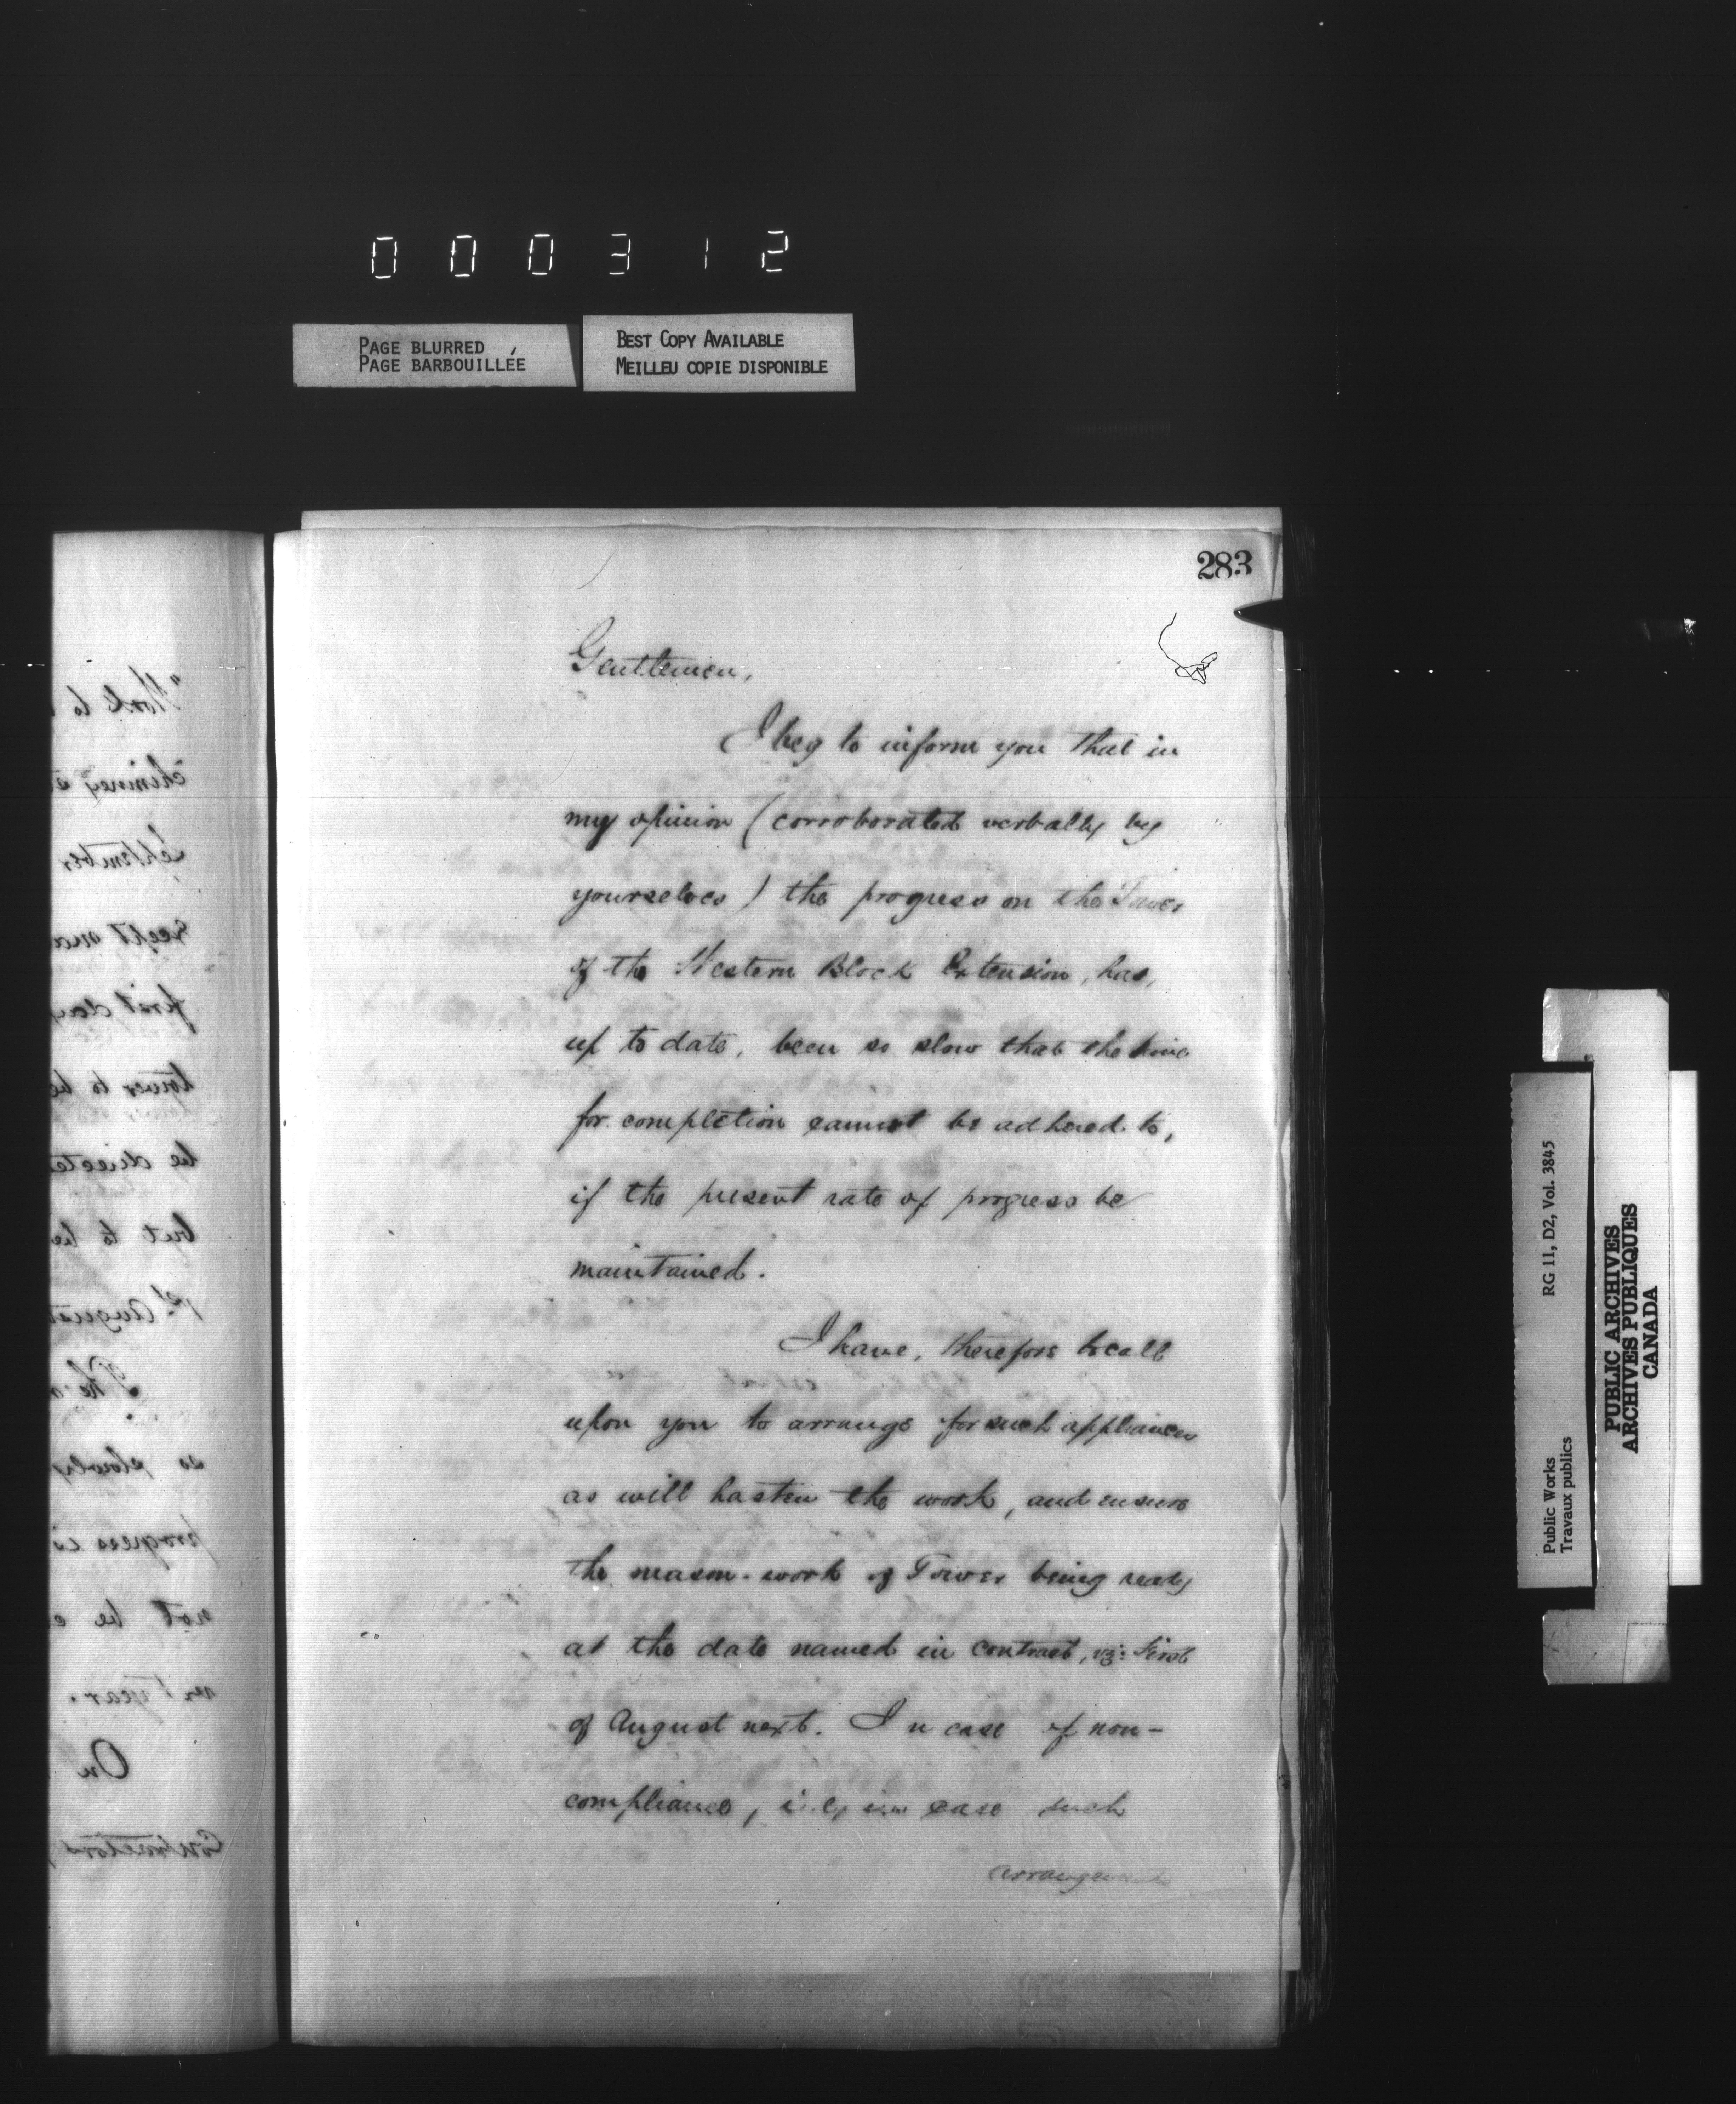 000312
PAGE BLURRED
PAGE BARBOUILLÉE
BEST COPY AVAILABLE
MEILLEU COPIE DISPONIBLE
283
Gentlemen,
I beg to inform you that in
my opinion (corroborated verbally by
yourselves) the progress on the Tower
of the Western Block Extension, has,
up to date, been so slow that the time
for completion cannot be adhered to,
if the present rate of progress be
maintained.
I have, therefore to call
upon you to arrange for such appliances
as will hasten the work, and ensure
the mason-work of Tower being ready
at the date named in contract, viz: First
of August next. In case of non-
compliance, i.e, in case such
arrangements
"Work to
chimney
September
first day
tower to be
be directed
but to be
1st August
The
so slowly
progress is
not be
next year.
On
Contractors
RG 11, D2, Vol. 3845
Public Works
Travaux publics
PUBLIC ARCHIVES
ARCHIVES PUBLIQUES
CANADA